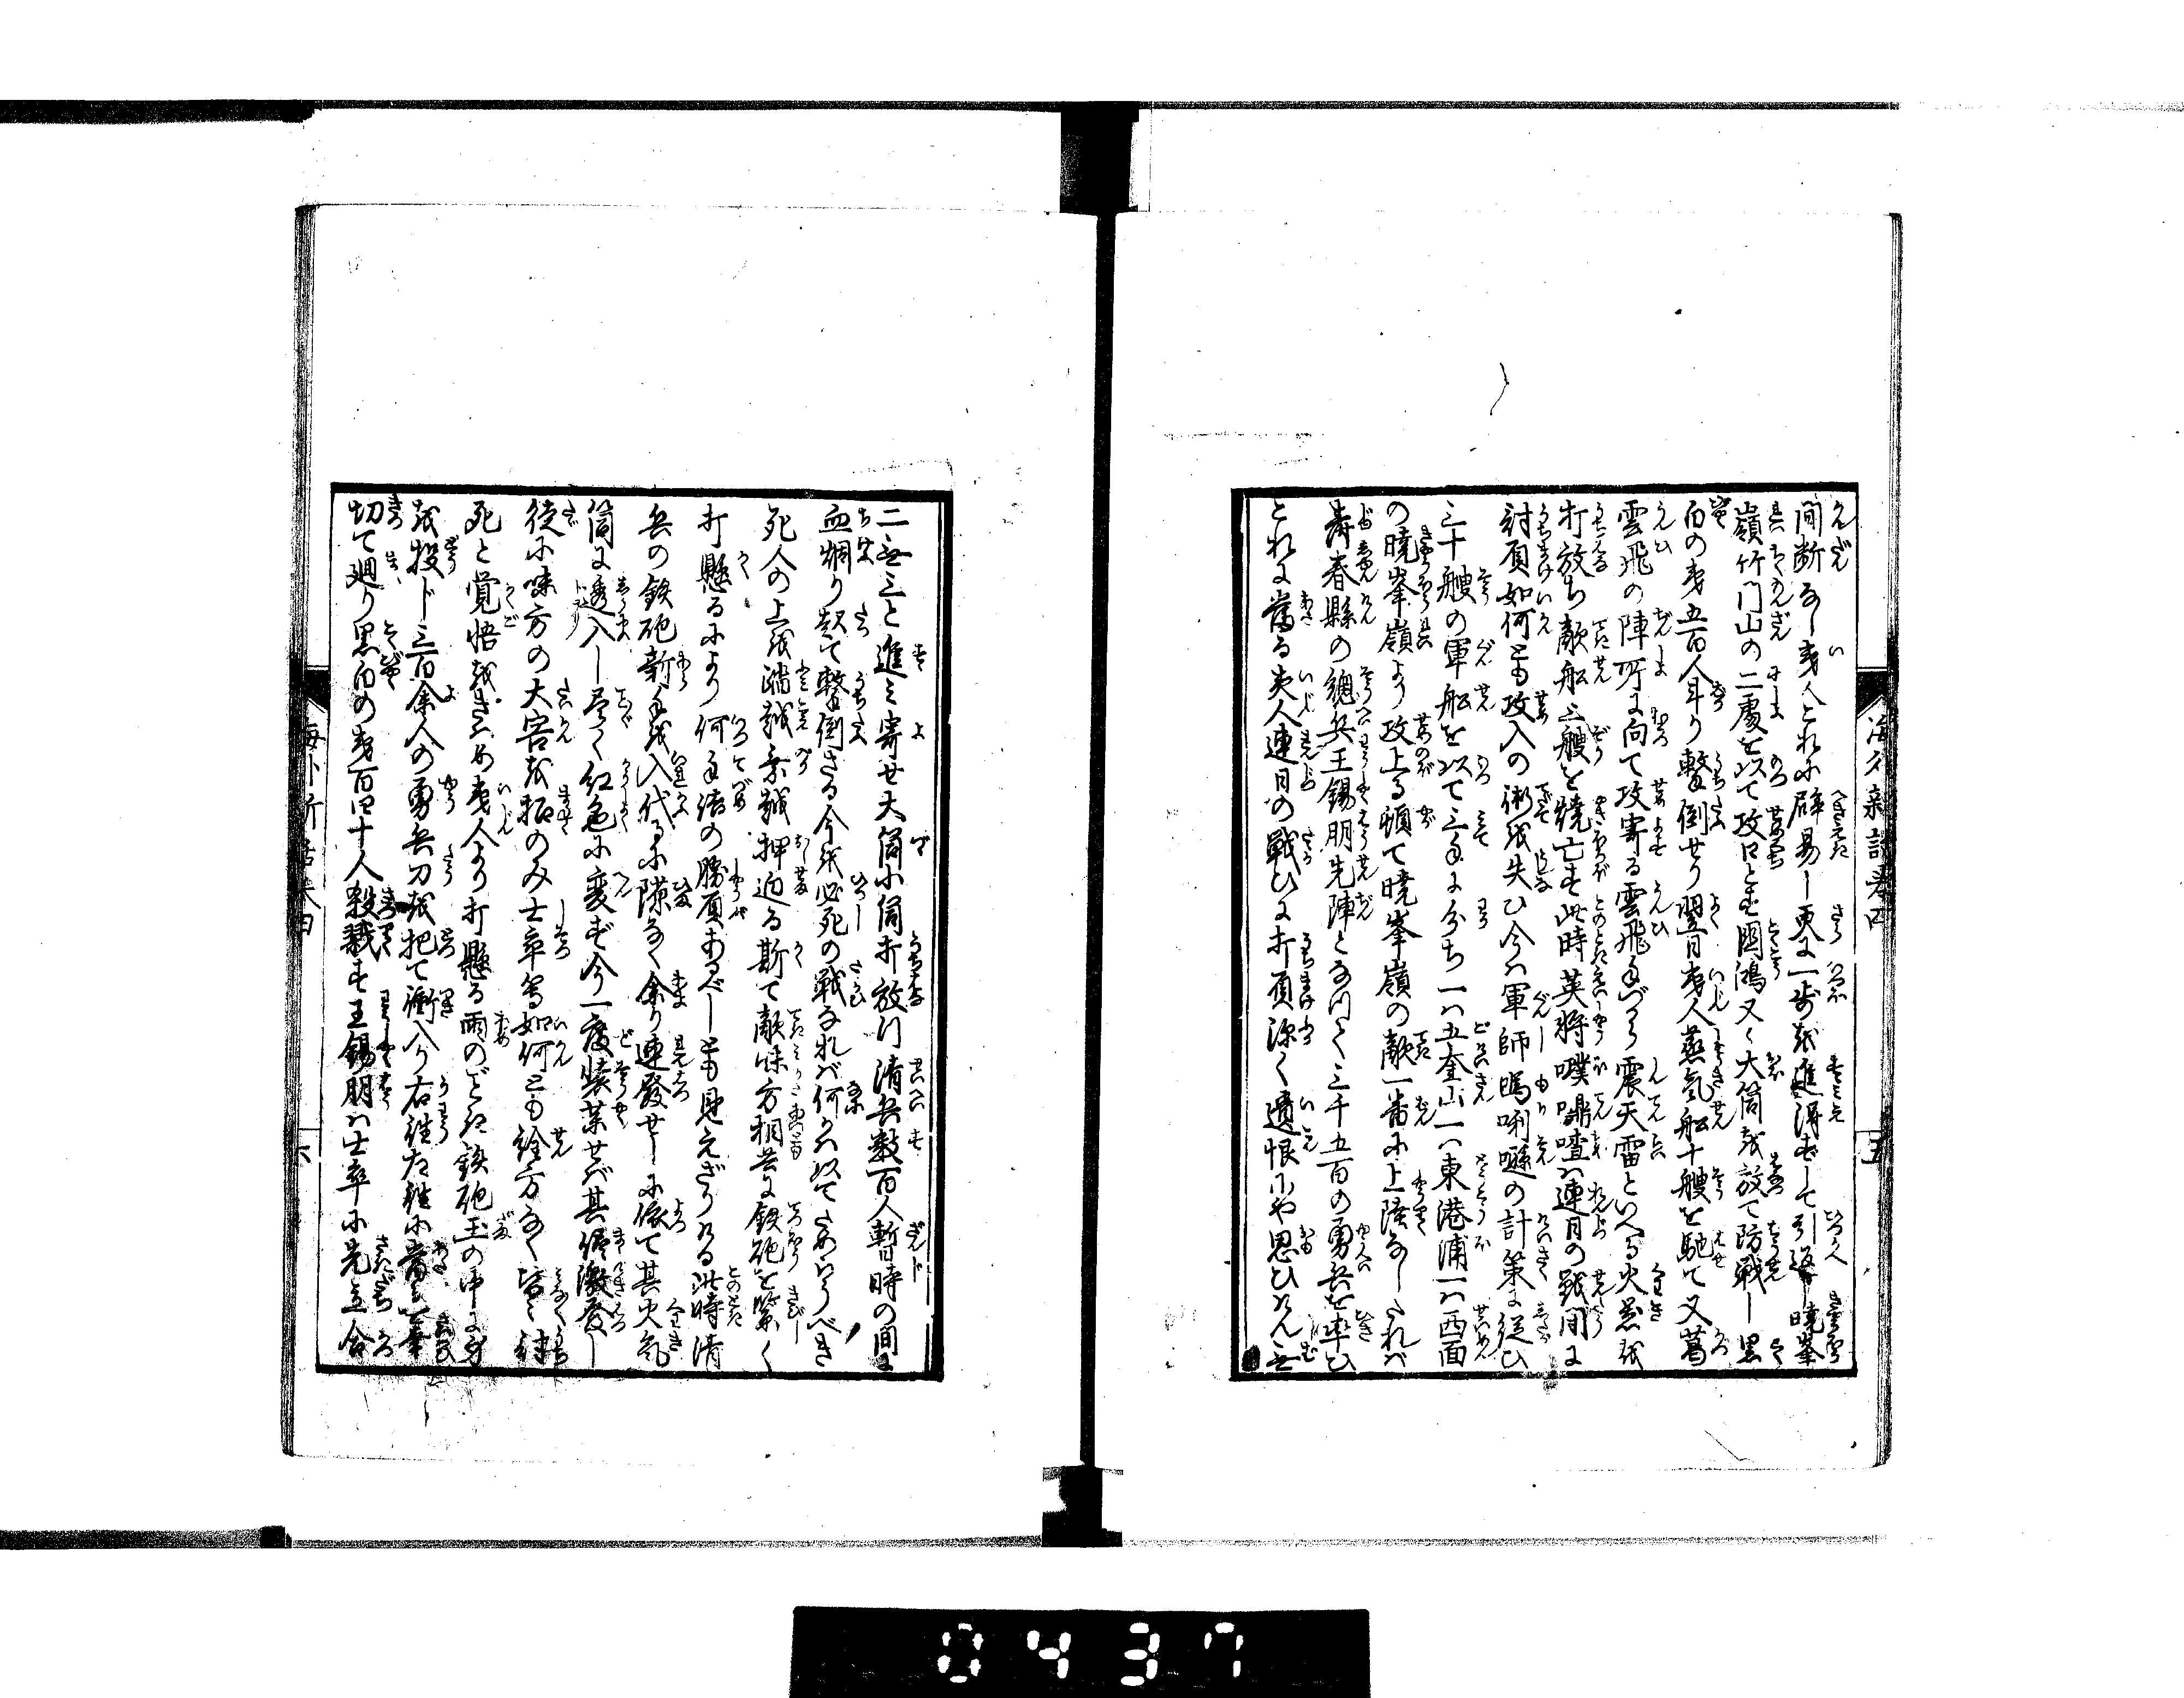 海外新話巻四
五
間断なし夷人これに辟易し更に一歩を進得ずして引返し暁峯
嶺竹門山の二處を以て攻口と
国鴻又々大筒を放て防戦し黒
白の夷五百人斗り撃倒せり翌日夷人蒸気船十艘を馳て又葛
雲飛の陣所に向て攻寄る雲飛手づから震天雷といへる火器を
打放ち敵船三艘を焼亡す此時英将噗𪡏喳ハ連月の戦間に
討負如何とも攻入の術を失ひ今ハ軍師嗎唎遜の計策に従ひ
三十艘の軍船を以て三手に分ち一ハ五奎山一ハ東港浦一ハ西面
の暁峯嶺より攻上る頓て暁峯嶺の敵一番に上陸なしたれバ
壽春縣の總兵王錫朋先陣となりて三千五百の勇兵を率ひ
これに當る英人連日の戦ひに打負深く遺恨にや思ひけん無
二無三と進み寄せ大筒小筒打放し清兵数百人暫時の間に
血烱り立て撃倒さる今を必死の戦なれバ何かハ以てためらうべき
死人の上を踏越乗越押迫る斯て敵味方相共に鉄砲を緊く
打懸るにより何手結の勝負あるべしとも見えざりける此時清
兵の鉄砲新手を入代るに隙なく余り連發せしに依て其火気
筒に透入し尽く紅色に変ず今一度装薬せバ其儘激發し
従に味方の大害を招のみ士卒等如何とも詮方なく皆々討
死と覚悟をきハめ夷人より打懸る雨のごとき鉄砲玉の中に身
を投じ三百余人の勇兵刀を把て衝入り右往左往に當るを幸
切て廻り黒白の夷百四十人殺戮す王錫朋ハ士卒に先立合
海外新話巻四
六
0437